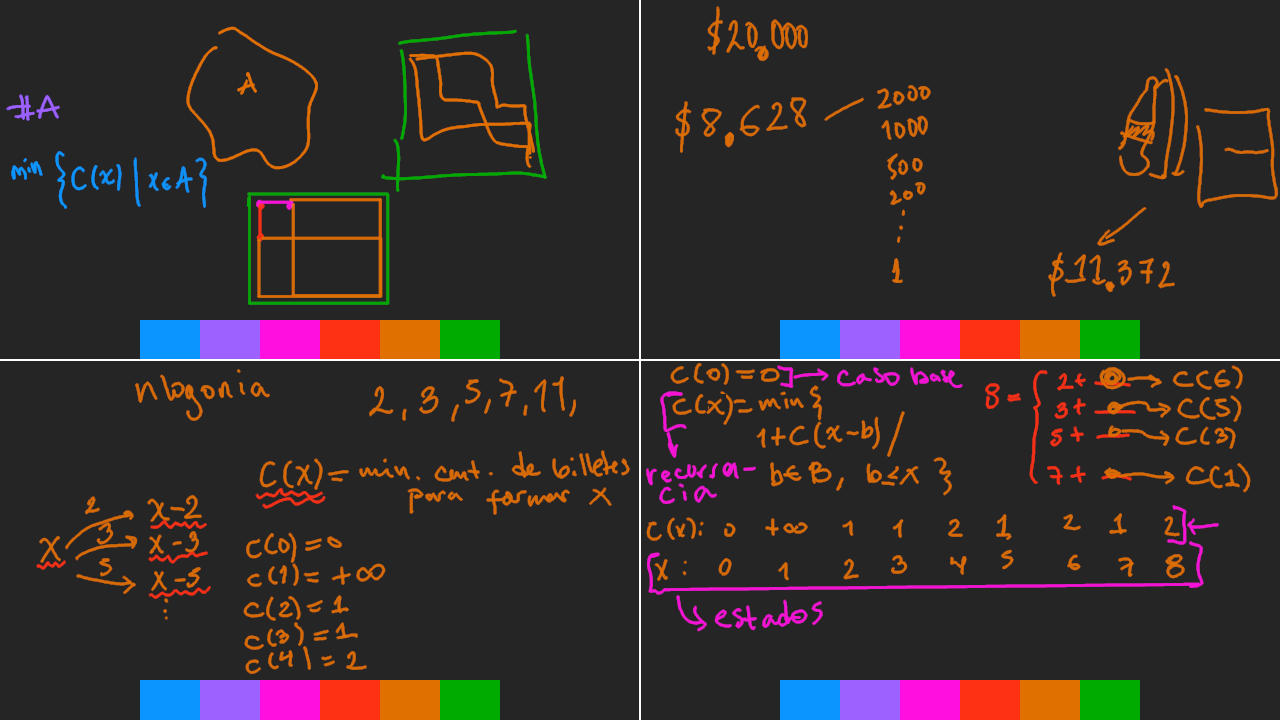 A
#A
min {C(x) | x∈A}
$20,000
$8,628
2000
1000
500
200
1
$11.372
nlogonia
2, 3, 5, 7, 11,
C(X) = min. cant. de billetes
para formar X
X
2
X-2
3
X-3
5
X-5
C(0)=0
C(1)=+∞
C(2)=1
C(3)=1
C(4)=2
C(0)=0 → caso base
C(x)=min{
1+C(x-b) /
b∈B, b≤x }
recurren-
cia
8=
2+ → C(6)
3+ → C(5)
5+ → C(3)
7+ → C(1)
C(x): 0 +∞ 1 1 2 1 2 1 2
X: 0 1 2 3 4 5 6 7 8
estados